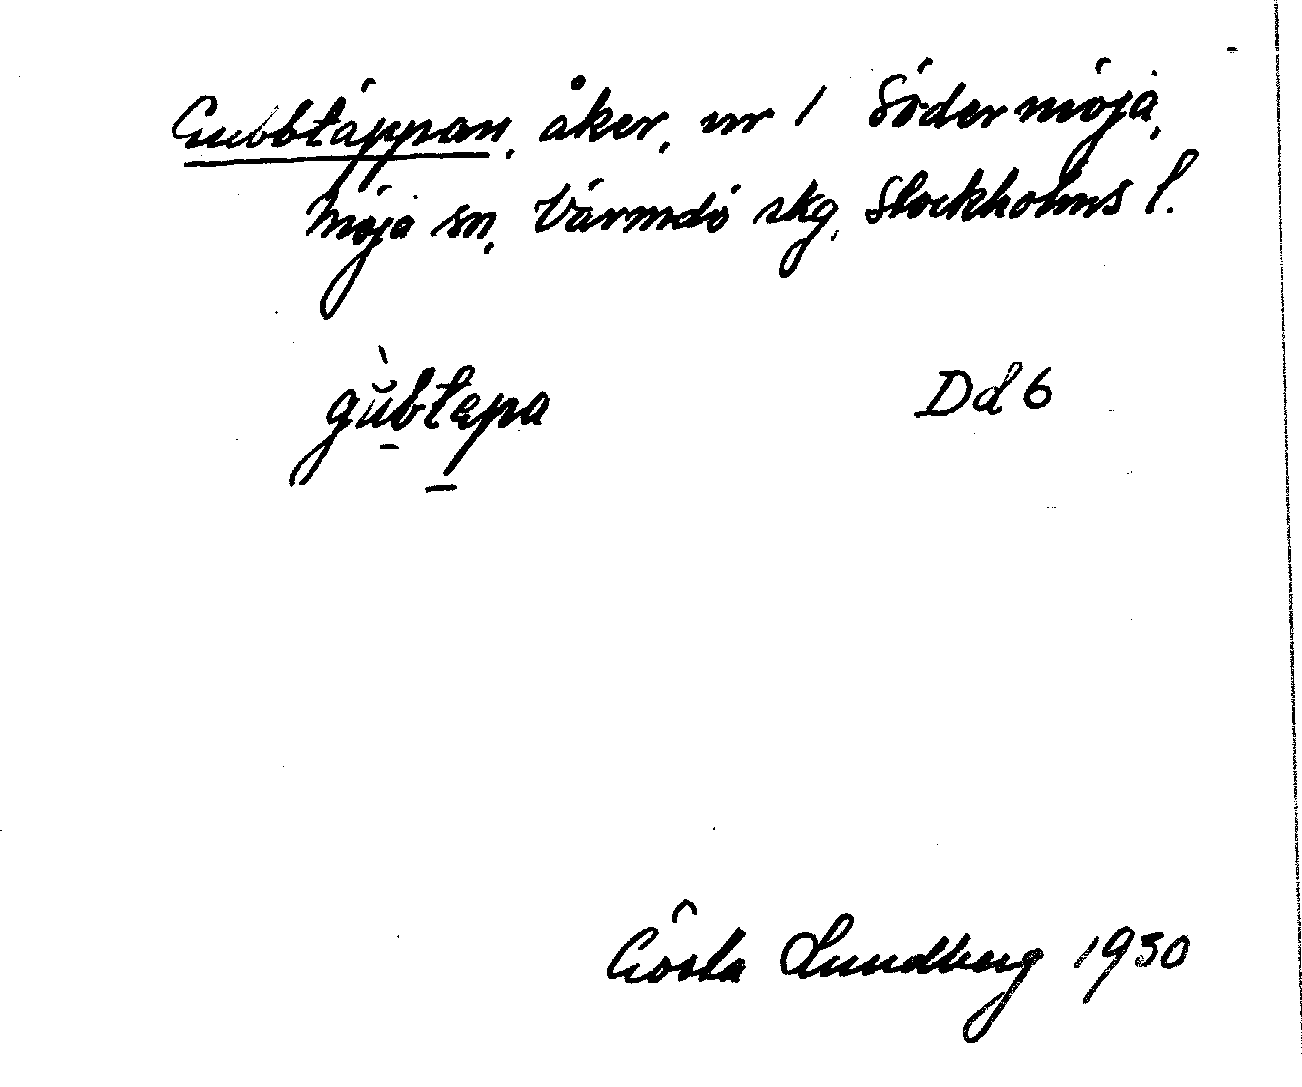 Gubbtäppan, åker, nr 1 Södermöja,
Möja sn, Värmdö skg, Stockholms l.
gùb̠tɛp̠a Dd 6
Gösta Lundberg 1930